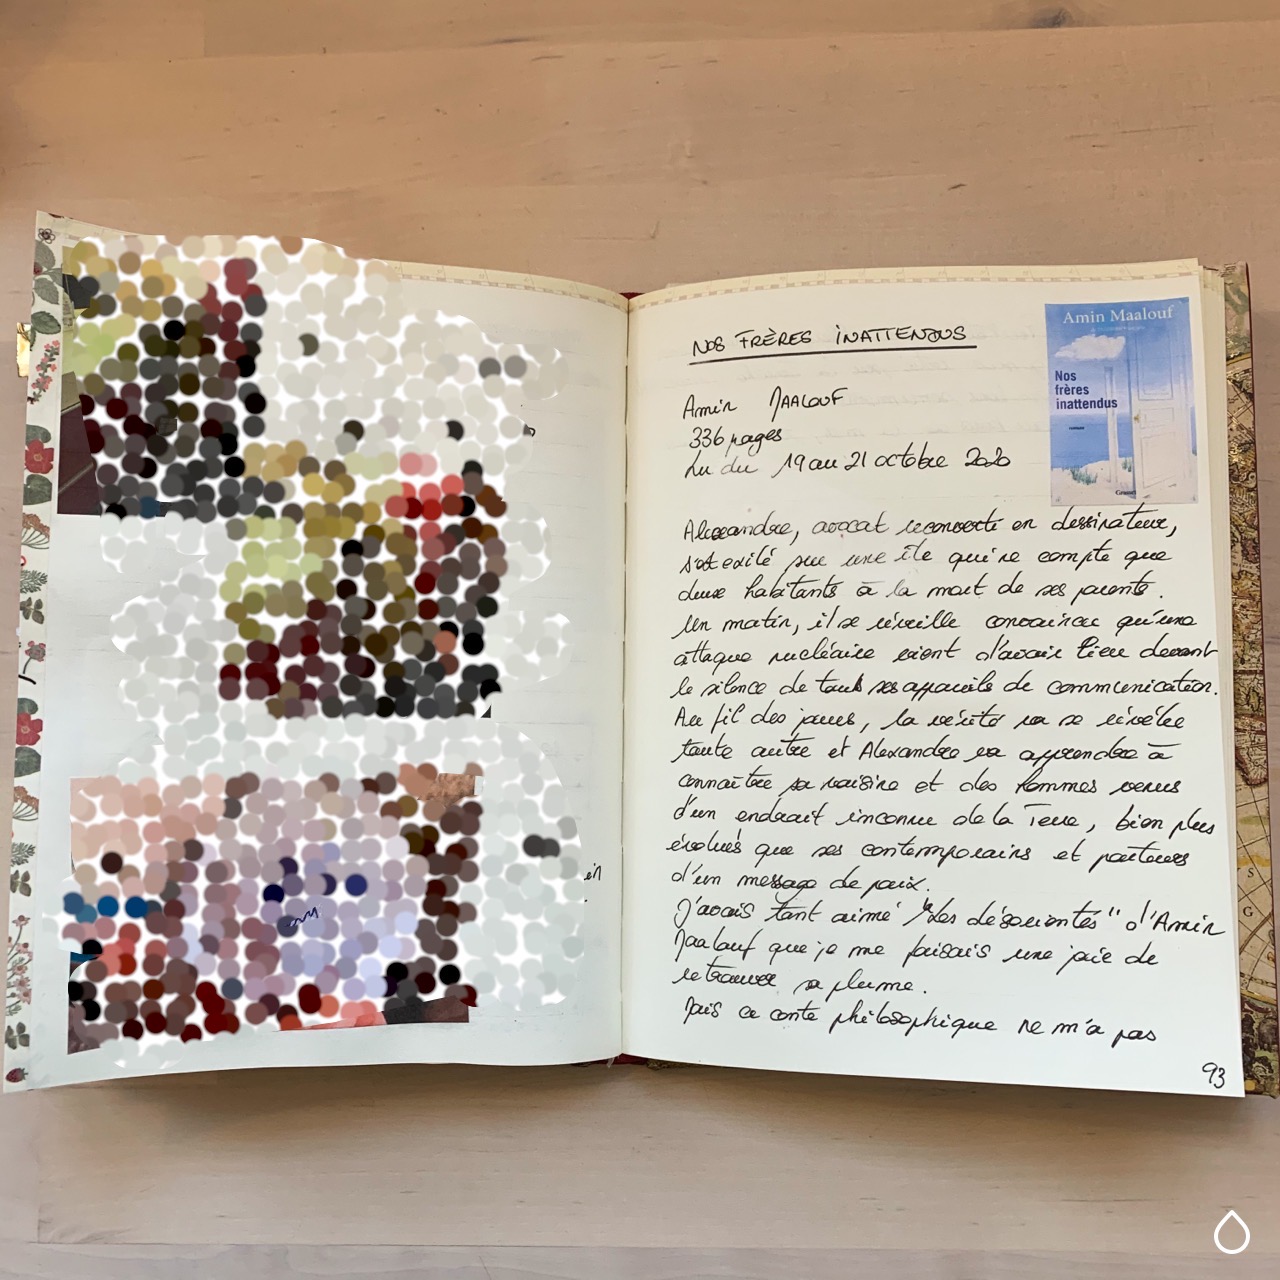 NOS FRÈRES INATTENDUS
Amin Maalouf
Nos
frères
inattendus
roman
Grasset
Amin MAALOUF
336 pages
Lu du 19 au 21 octobre 2020
Alexandre, avocat reconverti en dessinateur,
s'est exilé sur une île qui ne compte que
deux habitants à la mort de ses parents.
Un matin, il se réveille convaincu qu'une
attaque nucléaire vient d'avoir lieu devant
le silence de tous ses appareils de communication.
Au fil des jours, la vérité va se révéler
toute autre et Alexandre va apprendre à
connaître sa voisine et des hommes venus
d'un endroit inconnu de la Terre, bien plus
évolués que ses contemporains et porteurs
d'un message de paix.
J'avais tant aimé "Les désorientés" d'Amin
Maalouf que je me faisais une joie de
retrouver sa plume.
Mais ce conte philosophique ne m'a pas
93